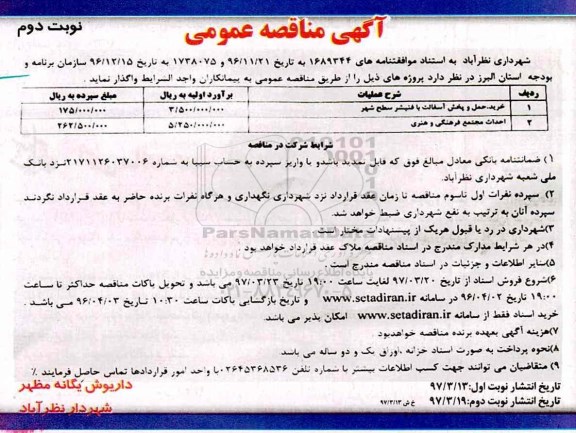 آگهی مناقصه عمومی
نوبت دوم
شهرداری نظرآباد به استناد موافقتنامه های ۱۶۸۹۳۴۴ به تاریخ ۹۶/۱۱/۲۱ و ۱۷۳۸۰۷۵ به تاریخ ۹۶/۱۲/۱۵ سازمان برنامه و
بودجه استان البرز در نظر دارد پروژه های ذیل را از طریق مناقصه عمومی به پیمانکاران واجد الشرایط واگذار نماید .
ردیف شرح عملیات برآورد اولیه به ریال مبلغ سپرده به ریال
۱ خرید،حمل و پخش آسفالت با فنیشر سطح شهر ۳/۵۰۰/۰۰۰/۰۰۰ ۱۷۵/۰۰۰/۰۰۰
۲ احداث مجتمع فرهنگی و هنری ۵/۲۵۰/۰۰۰/۰۰۰ ۲۶۲/۵۰۰/۰۰۰
شرایط شرکت در مناقصه
۱) ضمانتنامه بانکی معادل مبالغ فوق که قابل تمدید باشدو یا واریز سپرده به حساب سیبا به شماره ۲۱۷۱۱۲۶۰۳۷۰۰۶نزد بانک
ملی شعبه شهرداری نظرآباد.
۲) سپرده نفرات اول تاسوم مناقصه تا زمان عقد قرارداد نزد شهرداری نگهداری و هرگاه نفرات برنده حاضر به عقد قرارداد نگردند
سپرده آنان به ترتیب به نفع شهرداری ضبط خواهد شد.
۳)شهرداری در رد یا قبول هریک از پیشنهادات مختار است.
۴)در هر شرایط مدارک مندرج در اسناد مناقصه ملاک عقد قرارداد خواهد بود.
۵)سایر اطلاعات و جزئیات در اسناد مناقصه مندرج است.
۶)شروع فروش اسناد از تاریخ ۹۷/۰۳/۲۰ لغایت ساعت ۱۹:۰۰ تاریخ ۹۷/۰۳/۲۳ می باشد و تحویل پاکات مناقصه حداکثر تا ساعت
۱۹:۰۰ تاریخ ۹۶/۰۴/۰۲ در سامانه www.setadiran.ir و تاریخ بازگشایی پاکات ساعت ۱۰:۳۰ تاریخ ۹۶/۰۴/۰۳ می باشد .
خرید اسناد فقط از سامانه www.setadiran.ir امکان پذیر می باشد.
۷)هزینه آگهی بعهده برنده مناقصه خواهدبود.
۸)نحوه پرداخت به صورت اسناد خزانه ،اوراق یک و دو ساله می باشد
۹) متقاضیان می توانند جهت کسب اطلاعات بیشتر با شماره تلفن ۰۲۶۴۵۳۶۸۵۳۶با واحد امور قراردادها تماس حاصل فرمایند .٪
تاریخ انتشار نوبت اول:۹۷/۳/۱۳
تاریخ انتشار نوبت دوم:۹۷/۳/۱۹
خ ش ۹۷/۳/۱۳
داریوش یگانه مظهر
شهردار نظرآباد
ParsNamadData
پایگاه اطلاع رسانی مناقصه و مزایده